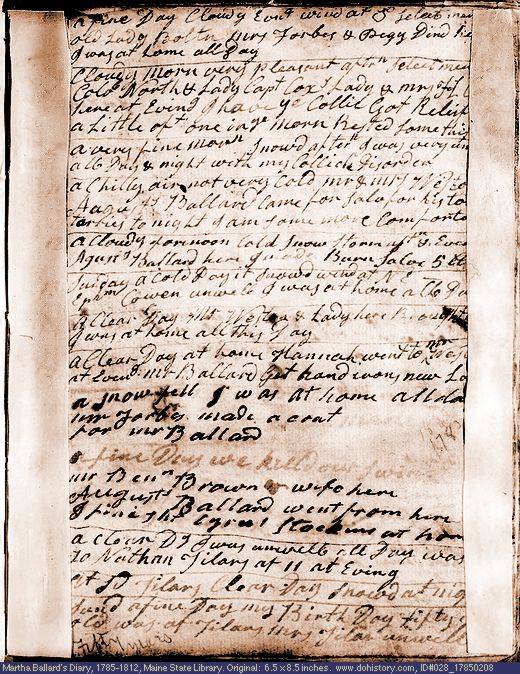 a fine Day Cloudy Evng wind at S Select men
old Lady Boltn Mrs Forbes & Pegg Dind
I was at home all Day
Cloudy Morn very pleasant aftrn Selectmen
Colo North & Lady Capt Cox & Lady & mrs
here at Eving I have ye Collic Got Relief
a Little oft one in ye Morn Rested some this
a very fine Mornn Snowd aftern I was very un
all Day & night with my Collick disorder
a Chilly air not very Cold mr & mrs Weston
Augus Ballard Came for Salv for his to
to night I am some more Comforta
a Cloudy forenoon Cold Snow Storm aftn & Even
Agusts Ballard here I made Burn Salve 5 lb
Sunday a Cold Day it Snowd wind at N
Ephm Cowen unwell I was at home all Da
a Clear Day Mr Weston & Lady here Brought
I was at home all this Day
a Clear Day at home Hannah went to mr Wes
at Evend mr Ballard got hand irons new
a snow fell I was at home all da
mr Forbes made a coat
for mr Ballard
1785
a fine Day we killd our Swine
mr Benn Brown & wife here
August Ballard went from here
I finisht Cyrus Stockins at hom
a Clear Dy I was unwell all Day was
to Nathan Tilars at 11 at Eving
at Do Tilars Clear Day Snowd at nig
Sund a fine Day my Birth Day fifty
old was at Tilars Mrs Tilar unwell
Martha Ballard's Diary, 1785-1812, Maine State Library. Original: 6.5 x 8.5 inches. www.dohistory.com, ID#028_17850208